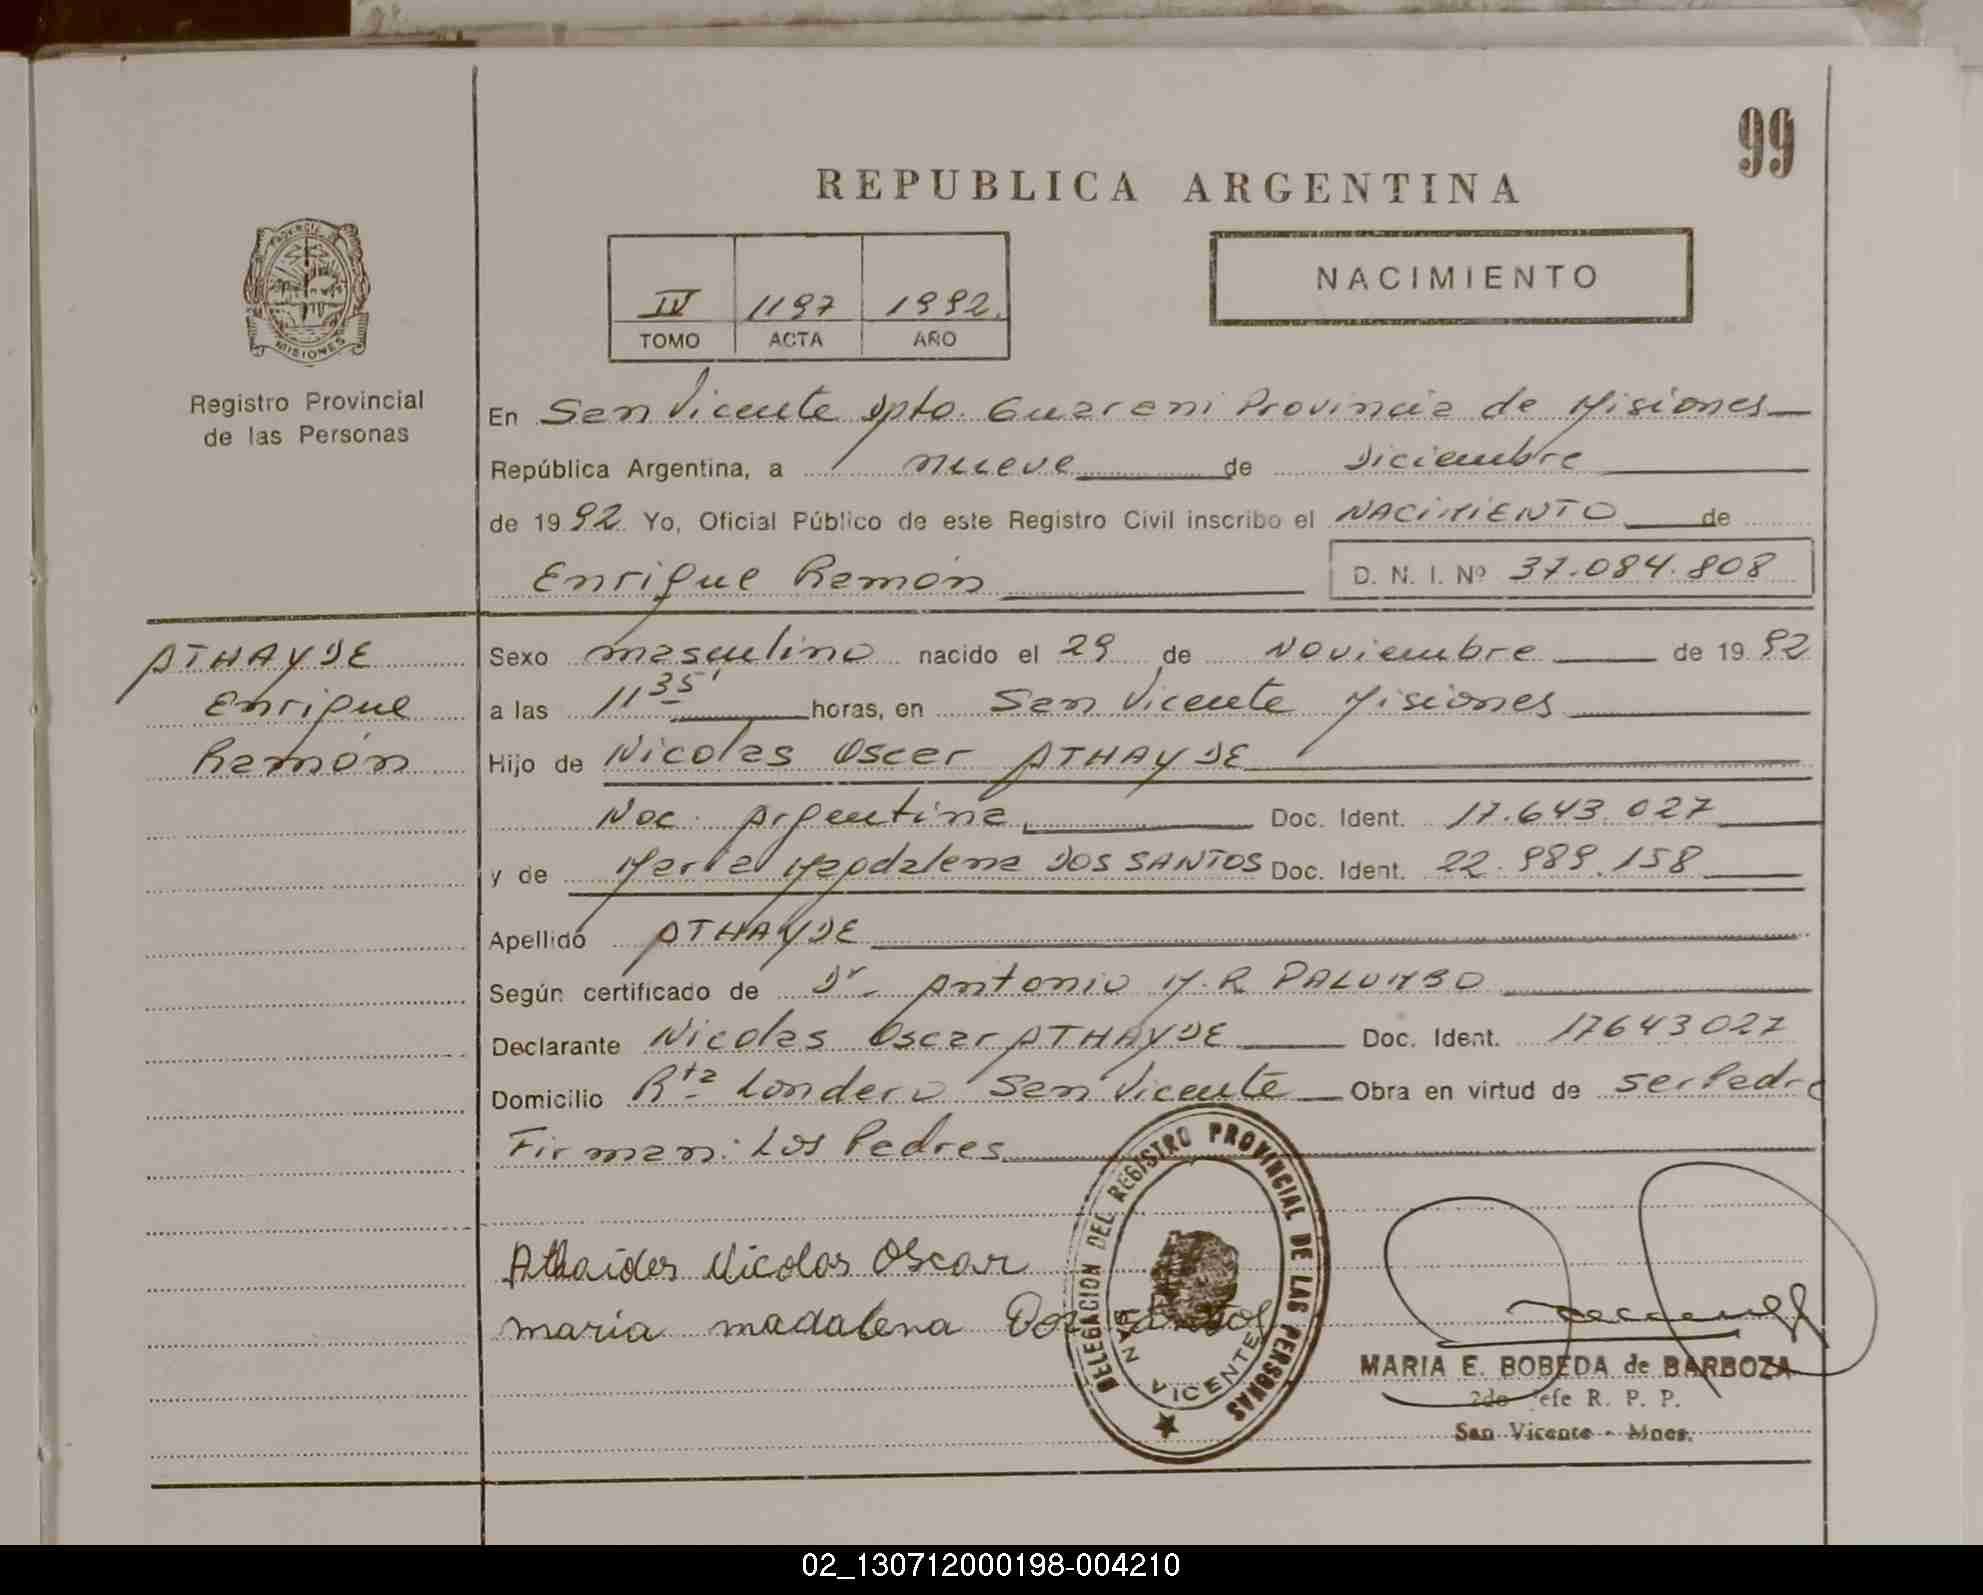 99
REPUBLICA ARGENTINA
NACIMIENTO
IV 1197 1992.
TOMO ACTA AÑO
PROVINCIA DE
MISIONES
Registro Provincial
de las Personas
En San Vicente Dpto. Guarani Provincia de Misiones
República Argentina, a nueve de Diciembre
de 1992 Yo, Oficial Público de este Registro Civil inscribo el NACIMIENTO de
Enrique Ramón D. N. I. Nº 37.084.808
ATHAYDE
Enrique
Ramón
Sexo masculino nacido el 29 de Noviembre de 1992
a las 11 35' horas, en San Vicente Misiones
Hijo de Nicolas Oscar ATHAYDE
Nac. Argentina Doc. Ident. 17.643.027
y de Maria Magdalena DOS SANTOS Doc. Ident. 22.989.158
Apellido ATHAYDE
Según certificado de Dr. Antonio M. R PALUMBO
Declarante Nicolas Oscar ATHAYDE Doc. Ident. 17643027
Domicilio Rta Londero San Vicente Obra en virtud de ser Padre
Firman: Los Padres
Athaides Nicolas Oscar
maria madalena Dos santos
DELEGACION DEL REGISTRO PROVINCIAL DE LAS PERSONAS
SAN VICENTE
MARIA E. BOBEDA de BARBOZA
2do Jefe R. P. P.
San Vicente - Mnes.
02_130712000198-004210